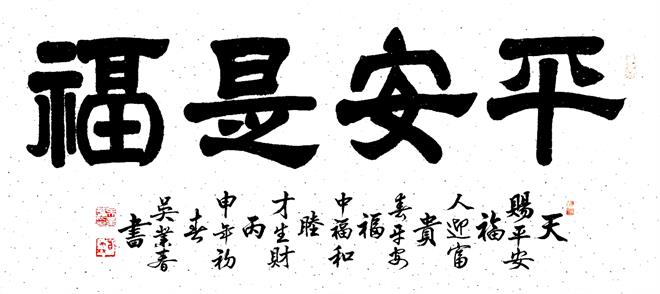 平安是福
天
賜平安
福
人迎富
貴
春平安
福
中福和
睦
才生財
丙
申年初
春
吳業春
書